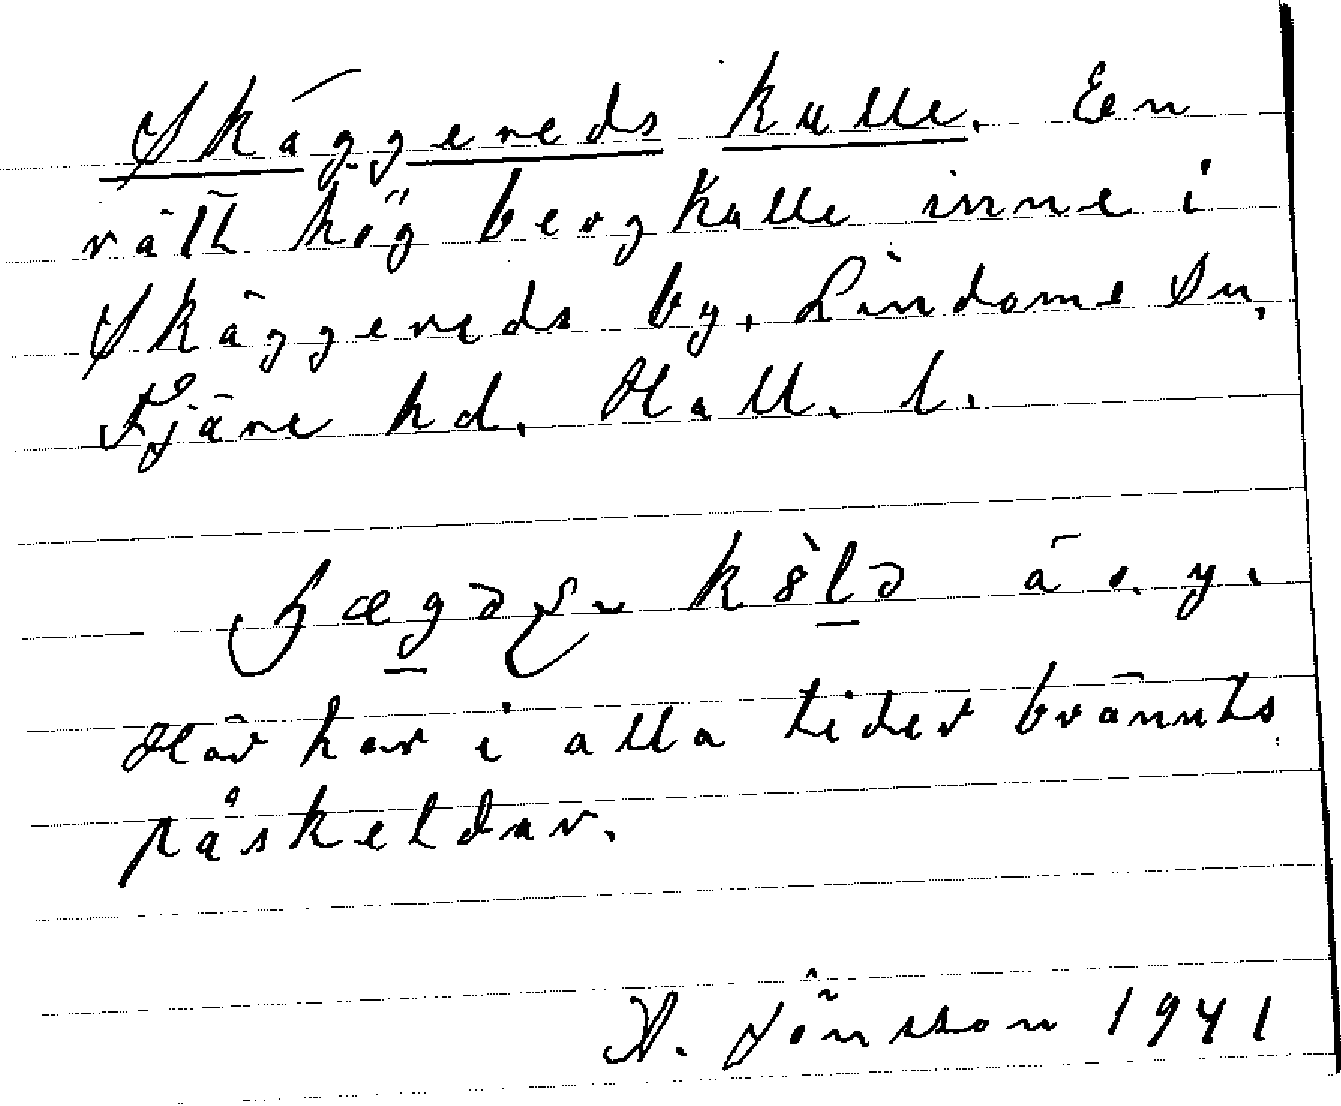 Skäggereds kulle. En
rätt hög bergkulle inne i
Skäggereds by. Lindome Sn,
Fjäre hd. Hall. l.
kɷ̀lə ä. y.
Här har i alla tider bränts
påskeldar.
A. Jönsson 1941